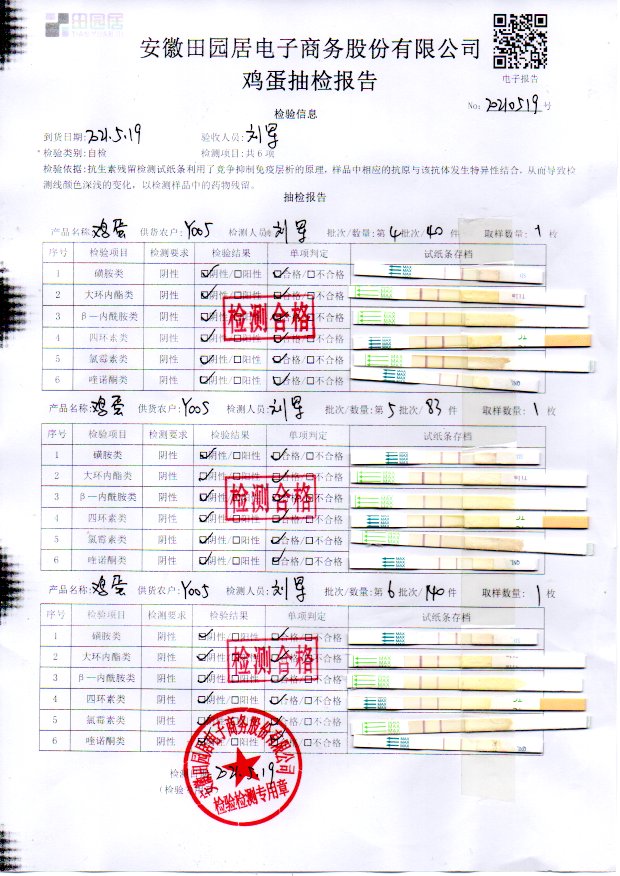 田园居
TIANYUANJU
安徽田园居电子商务股份有限公司
鸡蛋抽检报告
电子报告
No: 20210519号
检验信息
到货日期: 2021.5.19 验收人员: 刘军
*检验类别: 自检 检测项目: 共6项
检验依据: 抗生素残留检测试纸条利用了竞争抑制免疫层析的原理, 样品中相应的抗原与该抗体发生特异性结合, 从而导致检
测线颜色深浅的变化, 以检测样品中的药物残留。
抽检报告
产品名称: 鸡蛋 供货农户: Y005 检测人员: 刘军 批次/数量: 第4批次/40件 取样数量: 1枚
序号 检验项目 检测要求 检验结果 单项判定 试纸条存档
1 磺胺类 阴性 ☑阴性/□阳性 ☑合格/□不合格
2 大环内酯类 阴性 ☑阴性/□阳性 ☑合格/□不合格
3 β—内酰胺类 阴性 ☑阴性/□阳性 ☑合格/□不合格
4 四环素类 阴性 ☑阴性/□阳性 ☑合格/□不合格
5 氯霉素类 阴性 ☑阴性/□阳性 ☑合格/□不合格
6 喹诺酮类 阴性 ☑阴性/□阳性 ☑合格/□不合格
检测合格
产品名称: 鸡蛋 供货农户: Y005 检测人员: 刘军 批次/数量: 第5批次/83件 取样数量: 1枚
序号 检验项目 检测要求 检验结果 单项判定 试纸条存档
1 磺胺类 阴性 ☑阴性/□阳性 ☑合格/□不合格
2 大环内酯类 阴性 ☑阴性/□阳性 ☑合格/□不合格
3 β—内酰胺类 阴性 ☑阴性/□阳性 ☑合格/□不合格
4 四环素类 阴性 ☑阴性/□阳性 ☑合格/□不合格
5 氯霉素类 阴性 ☑阴性/□阳性 ☑合格/□不合格
6 喹诺酮类 阴性 ☑阴性/□阳性 ☑合格/□不合格
检测合格
产品名称: 鸡蛋 供货农户: Y005 检测人员: 刘军 批次/数量: 第6批次/140件 取样数量: 1枚
序号 检验项目 检测要求 检验结果 单项判定 试纸条存档
1 磺胺类 阴性 ☑阴性/□阳性 ☑合格/□不合格
2 大环内酯类 阴性 ☑阴性/□阳性 ☑合格/□不合格
3 β—内酰胺类 阴性 ☑阴性/□阳性 ☑合格/□不合格
4 四环素类 阴性 ☑阴性/□阳性 ☑合格/□不合格
5 氯霉素类 阴性 ☑阴性/□阳性 ☑合格/□不合格
6 喹诺酮类 阴性 ☑阴性/□阳性 ☑合格/□不合格
检测合格
2021.5.19
安徽田园居电子商务股份有限公司
检验检测专用章